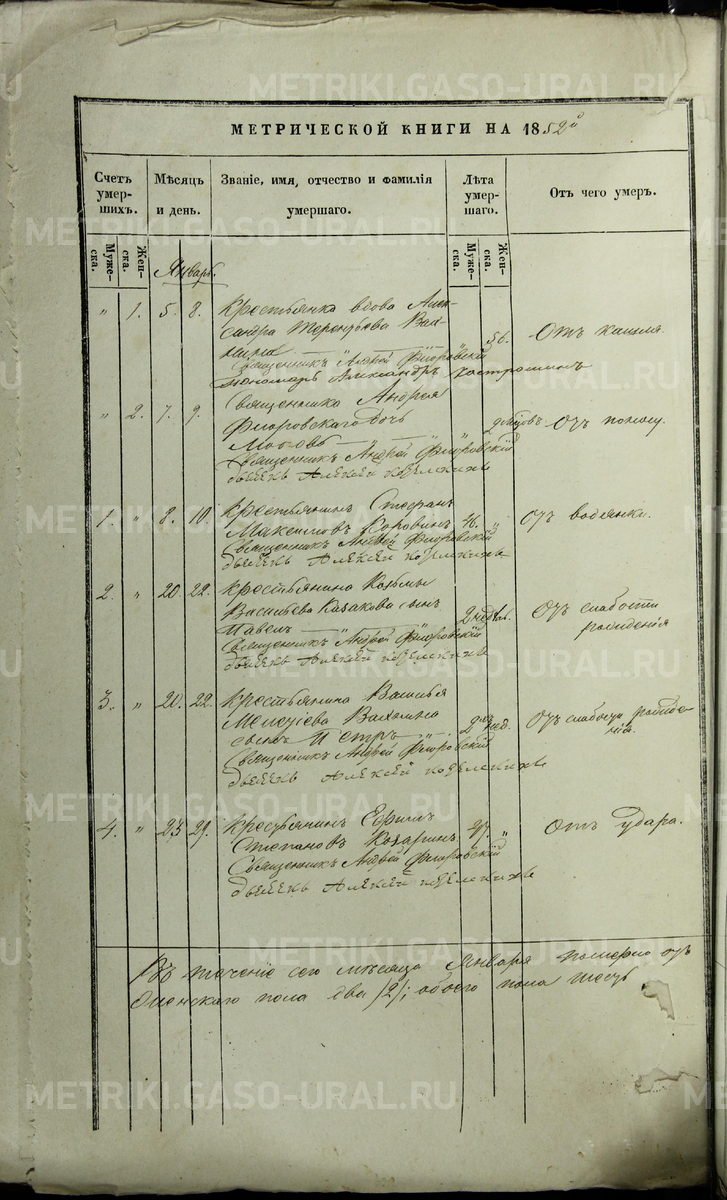 МЕТРИЧЕСКОЙ КНИГИ НА 1852й
Счетъ умершихъ.
Мѣсяцъ и день.
Званіе, имя, отчество и фамилія умершаго.
Лѣта умершаго.
Отъ чего умеръ.
Мужеска.
Женска.
Мужеска.
Женска.
Январь.
" 1. 5. 8. Крестьянка вдова Александра Терентьева 56. Отъ кашля.
Священникъ Андрей Флоровскій
пономарь Александръ
" 2. 7. 9. Священника Андрея
Флоровскаго дочь Отъ поносу.
Священникъ Андрей Флоровскій
дьячекъ Алексѣй
1. " 8. 10. Крестьянинъ Стефанъ
Максимовъ Коровинъ 46. " Отъ водянки.
Священникъ Андрей Флоровскій
дьячекъ Алексѣй
2. " 20. 22. Крестьянина Козьмы
Васильева Казакова сынъ
Павелъ 2 недѣл. Отъ слабости рожденія
Священникъ Андрей Флоровскій
дьячекъ Алексѣй
3. " 20. 22. Крестьянина Василья
сынъ Петръ 2 нед. Отъ слабости рожденія.
Священникъ Андрей Флоровскій
дьячекъ Алексѣй
4. " 23. 29. Крестьянинъ Ефимъ
Степановъ " Отъ удара.
Священникъ Андрей Флоровскій
дьячекъ Алексѣй
Въ теченіе сего мѣсяца Января померло
пола два /2/; обоего пола шесть
METRIKI.GASO-URAL.RU